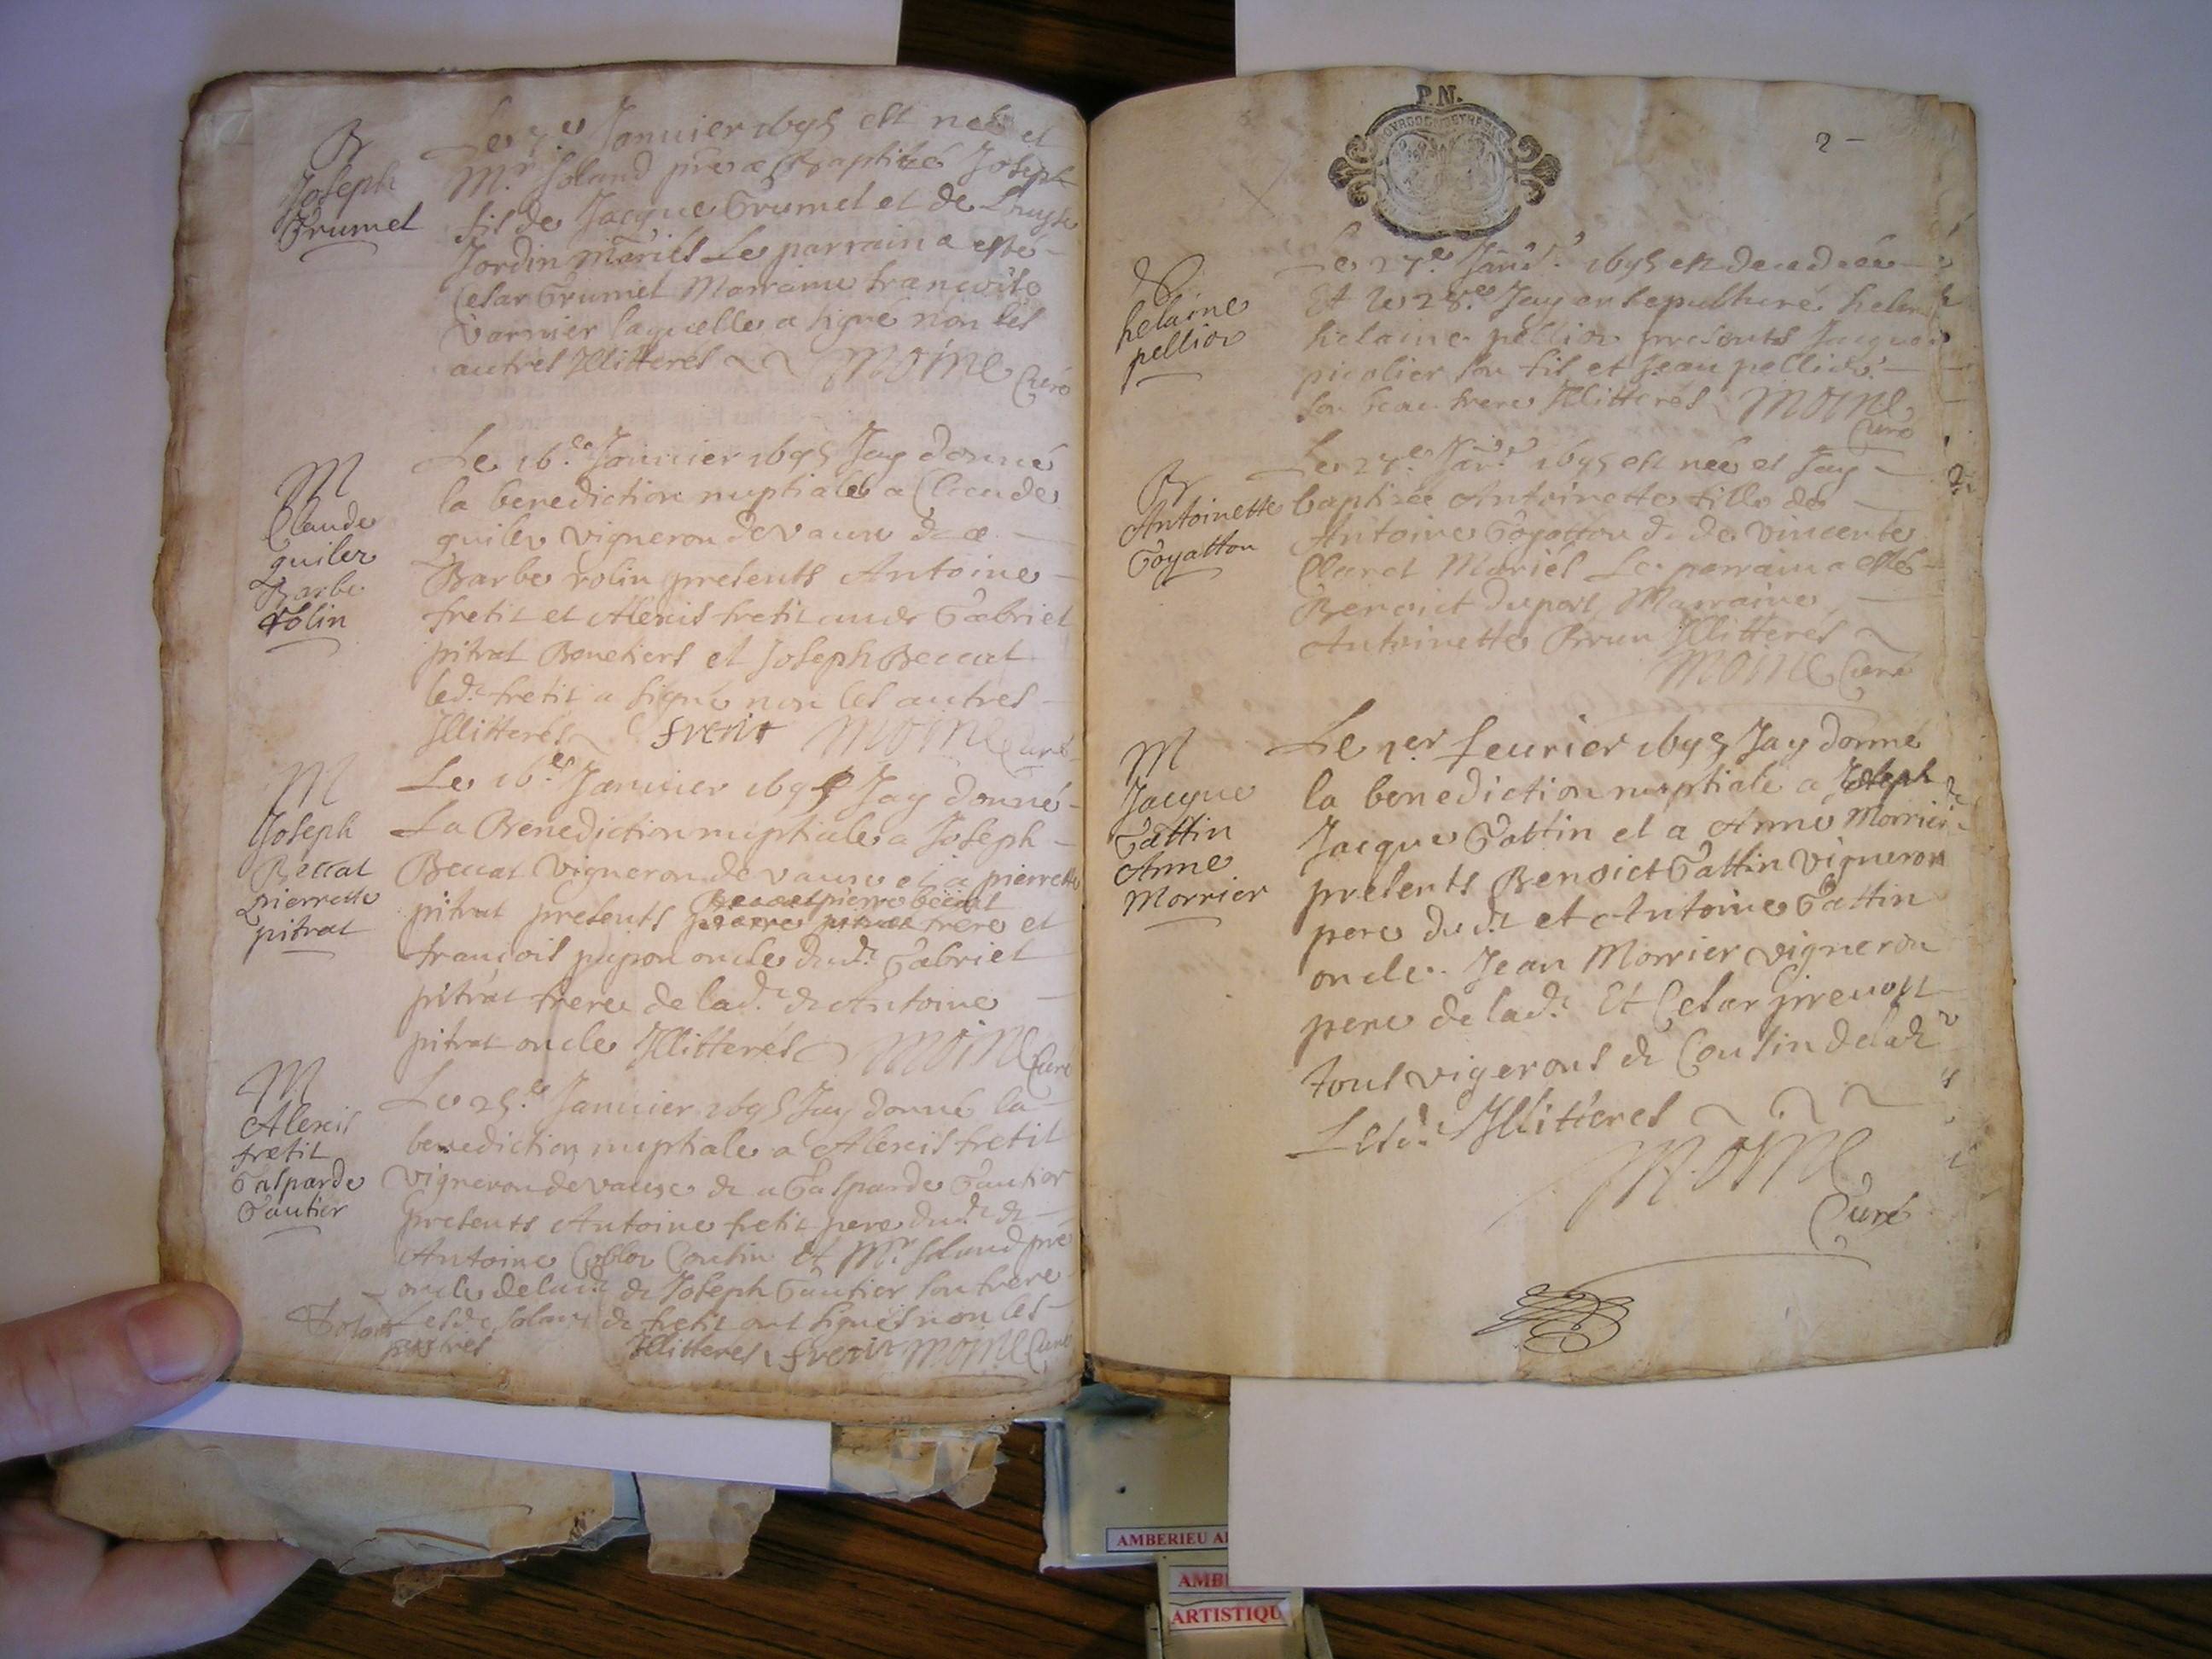 B
Joseph
Grumel
Le 7.e Januier 1695 est né et
M.r Soland pre a Baptizé Joseph
fils de Jacque Grumel et de Louyse
Jordin Mariés Le parrain a esté
Cesar Grumel Marraine francoise
Varnier laquelle a signé non les
autres Illitterés Moine Curé
M
Claude
guiler
Barbe
rolin
Le 16.e Januier 1695 Jay donné
la benediction nuptiale a Claude
guiler vigneron de vaux & a
Barbe rolin presents Antoine
fretit et Alexis fretit Gabriel
pitrat Benetiers et Joseph Beccat
led.t fretit a signé non les autres
Illitterés fretit Moine Curé
M
Joseph
Beccat
pierrette
pitrat
Le 16.e Januier 1695 Jay donné
La Benediction nuptiale a Joseph
Beccat Vigneron de vaux et a pierrette
pierre beccat
pitrat presents frere et
françois papon oncle dud.t Gabriel
pitrat frere de lad.te & Antoine
pitrat oncle Illitterés Moine Curé
M
Alexis
fretit
Gasparde
Gautier
Le 25.e Januier 1695 Jay donné la
benediction nuptiale a Alexis fretit
Vigneron de vaux & a Gasparde Gautier
presents Antoine fretit pere dud.t &
Antoine Cousin Et M.r Soland pre
oncle de lad.te & Joseph Gautier son frere
Lesd. Soland & fretit ont signés non les
Illitteres fretit Moine Curé
P.N.
2 -
helaine
pellior
Le 27.e Janv.r 1695 est decedée
Et le 28.e Jay ensepulturé
helaine pellior presents Jacque
son fils et Jean pellior
son beau frere Illitterés Moine
Curé
B
Antoinette
Goyatton
Le 27.e Janr 1695 est née et Jay
baptizée Antoinette fille de
Antoine Goyatton & de Vincente
Claret Mariés Le parrain a esté
Benoict duport, Marraine
Antoinette Brun Illitterés
Moine Curé
M
Jacque
Gattin
Anne
Morrier
Le 1er feurier 1695 Jay donné
la benediction nuptiale a Joseph
Jacque Gattin et a Anne Morrier
presents Benoict Gattin Vigneron
pere dud.t et Antoine Gattin
oncle. Jean Morrier vigneron
pere de lad.te Et Cesar preuost
tous vigerons & Cousin de lad.te
Lesd.ts Illitteres
Moine
Curé
AMBERIEU
AMB
ARTISTIQU